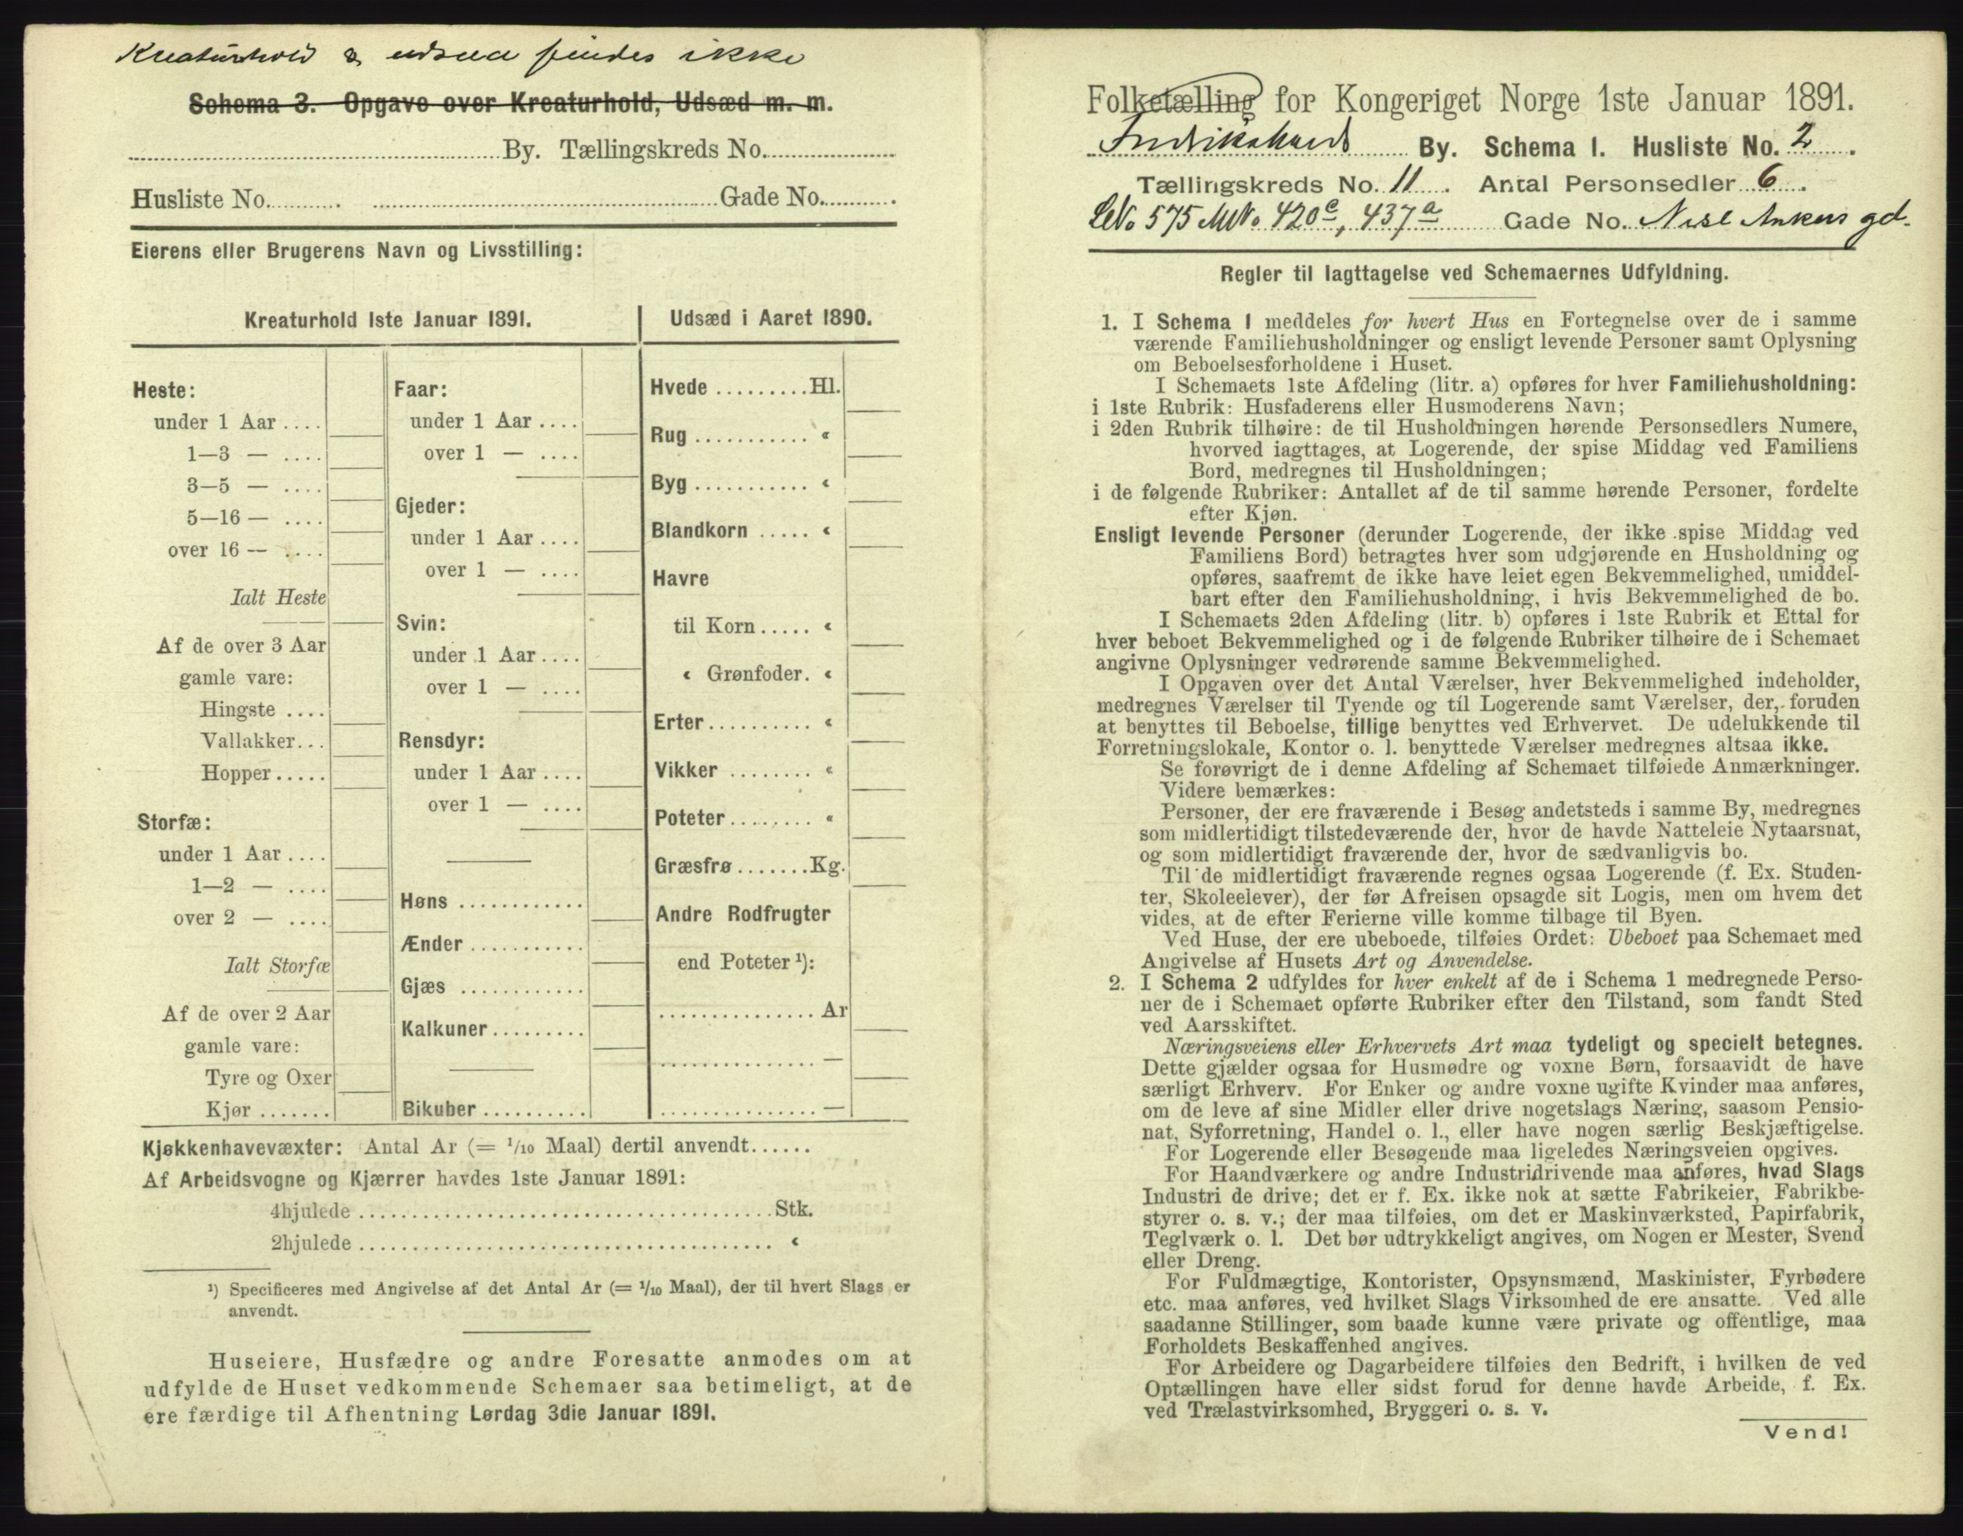 Kreaturhold & udsæd findes ikke
Schema 3. Opgave over Kreaturhold, Udsæd m. m.
By. Tællingskreds No.
Husliste No. . Gade No. .
Eierens eller Brugerens Navn og Livsstilling:
Kreaturhold 1ste Januar 1891.
Heste:
under 1 Aar ....
1—3 — ....
3—5 — ....
5—16 — ....
over 16 — ....
Ialt Heste
Af de over 3 Aar
gamle vare:
Hingste ....
Vallakker...
Hopper.....
Storfæ:
under 1 Aar ....
1—2 — ....
over 2 — ....
Ialt Storfæ
Af de over 2 Aar
gamle vare:
Tyre og Oxer
Kjør .......
Faar:
under 1 Aar ....
over 1 — ....
Gjeder:
under 1 Aar ....
over 1 — ....
Svin:
under 1 Aar ....
over 1 — ....
Rensdyr:
under 1 Aar ....
over 1 — ....
Høns ............
Ænder ...........
Gjæs ............
Kalkuner.........
Bikuber ..........
Udsæd i Aaret 1890.
Hvede .........Hl.
Rug ........... «
Byg ........... «
Blandkorn ..... «
Havre
til Korn..... «
« Grønfoder. «
Erter .......... «
Vikker ........ «
Poteter........ «
Græsfrø .......Kg.
Andre Rodfrugter
end Poteter ¹):
............... Ar
............... —
............... —
Kjøkkenhavevæxter: Antal Ar (= 1/10 Maal) dertil anvendt......
Af Arbeidsvogne og Kjærrer havdes 1ste Januar 1891:
4hjulede ........................................Stk.
2hjulede ........................................ «
¹) Specificeres med Angivelse af det Antal Ar (= 1/10 Maal), der til hvert Slags er
anvendt.
Huseiere, Husfædre og andre Foresatte anmodes om at
udfylde de Huset vedkommende Schemaer saa betimeligt, at de
ere færdige til Afhentning Lørdag 3die Januar 1891.
Folketælling for Kongeriget Norge 1ste Januar 1891.
Fredrikshald By. Schema 1. Husliste No. 2 .
Tællingskreds No. 11 . Antal Personsedler 6 .
LNo 575 MNo 420c, 437a Gade No. Nils Ankers gd.
Regler til Iagttagelse ved Schemaernes Udfyldning.
1. I Schema 1 meddeles for hvert Hus en Fortegnelse over de i samme
værende Familiehusholdninger og ensligt levende Personer samt Oplysning
om Beboelsesforholdene i Huset.
I Schemaets 1ste Afdeling (litr. a) opføres for hver Familiehusholdning:
i 1ste Rubrik: Husfaderens eller Husmoderens Navn;
i 2den Rubrik tilhøire: de til Husholdningen hørende Personsedlers Numere,
hvorved iagttages, at Logerende, der spise Middag ved Familiens
Bord, medregnes til Husholdningen;
i de følgende Rubriker: Antallet af de til samme hørende Personer, fordelte
efter Kjøn.
Ensligt levende Personer (derunder Logerende, der ikke spise Middag ved
Familiens Bord) betragtes hver som udgjørende en Husholdning og
opføres, saafremt de ikke have leiet egen Bekvemmelighed, umiddel-
bart efter den Familiehusholdning, i hvis Bekvemmelighed de bo.
I Schemaets 2den Afdeling (litr. b) opføres i 1ste Rubrik et Ettal for
hver beboet Bekvemmelighed og i de følgende Rubriker tilhøire de i Schemaet
angivne Oplysninger vedrørende samme Bekvemmelighed.
I Opgaven over det Antal Værelser, hver Bekvemmelighed indeholder,
medregnes Værelser til Tyende og til Logerende samt Værelser, der, foruden
at benyttes til Beboelse, tillige benyttes ved Erhvervet. De udelukkende til
Forretningslokale, Kontor o. l. benyttede Værelser medregnes altsaa ikke.
Se forøvrigt de i denne Afdeling af Schemaet tilføiede Anmærkninger.
Videre bemærkes:
Personer, der ere fraværende i Besøg andetsteds i samme By, medregnes
som midlertidigt tilstedeværende der, hvor de havde Natteleie Nytaarsnat,
og som midlertidigt fraværende der, hvor de sædvanligvis bo.
Til de midlertidigt fraværende regnes ogsaa Logerende (f. Ex. Studen-
ter, Skoleelever), der før Afreisen opsagde sit Logis, men om hvem det
vides, at de efter Ferierne ville komme tilbage til Byen.
Ved Huse, der ere ubeboede, tilføies Ordet: Ubeboet paa Schemaet med
Angivelse af Husets Art og Anvendelse.
2. I Schema 2 udfyldes for hver enkelt af de i Schema 1 medregnede Perso-
ner de i Schemaet opførte Rubriker efter den Tilstand, som fandt Sted
ved Aarsskiftet.
Næringsveiens eller Erhvervets Art maa tydeligt og specielt betegnes.
Dette gjælder ogsaa for Husmødre og voxne Børn, forsaavidt de have
særligt Erhverv. For Enker og andre voxne ugifte Kvinder maa anføres,
om de leve af sine Midler eller drive nogetslags Næring, saasom Pensio-
nat, Syforretning, Handel o. l., eller have nogen særlig Beskjæftigelse.
For Logerende eller Besøgende maa ligeledes Næringsveien opgives.
For Haandværkere og andre Industridrivende maa anføres, hvad Slags
Industri de drive; det er f. Ex. ikke nok at sætte Fabrikeier, Fabrikbe-
styrer o. s. v.; der maa tilføies, om det er Maskinværksted, Papirfabrik,
Teglværk o. l. Det bør udtrykkeligt angives, om Nogen er Mester, Svend
eller Dreng.
For Fuldmægtige, Kontorister, Opsynsmænd, Maskinister, Fyrbødere
etc. maa anføres, ved hvilket Slags Virksomhed de ere ansatte. Ved alle
saadanne Stillinger, som baade kunne være private og offentlige, maa
Forholdets Beskaffenhed angives.
For Arbeidere og Dagarbeidere tilføies den Bedrift, i hvilken de ved
Optællingen have eller sidst forud for denne havde Arbeide, f. Ex.
ved Trælastvirksomhed, Bryggeri o. s. v.
Vend!